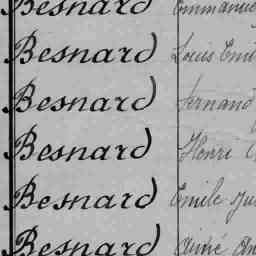 Besnard Emmanuel
Besnard Louis Emil
Besnard Fernand
Besnard Henri
Besnard Emile Ju
Besnard Aimé An